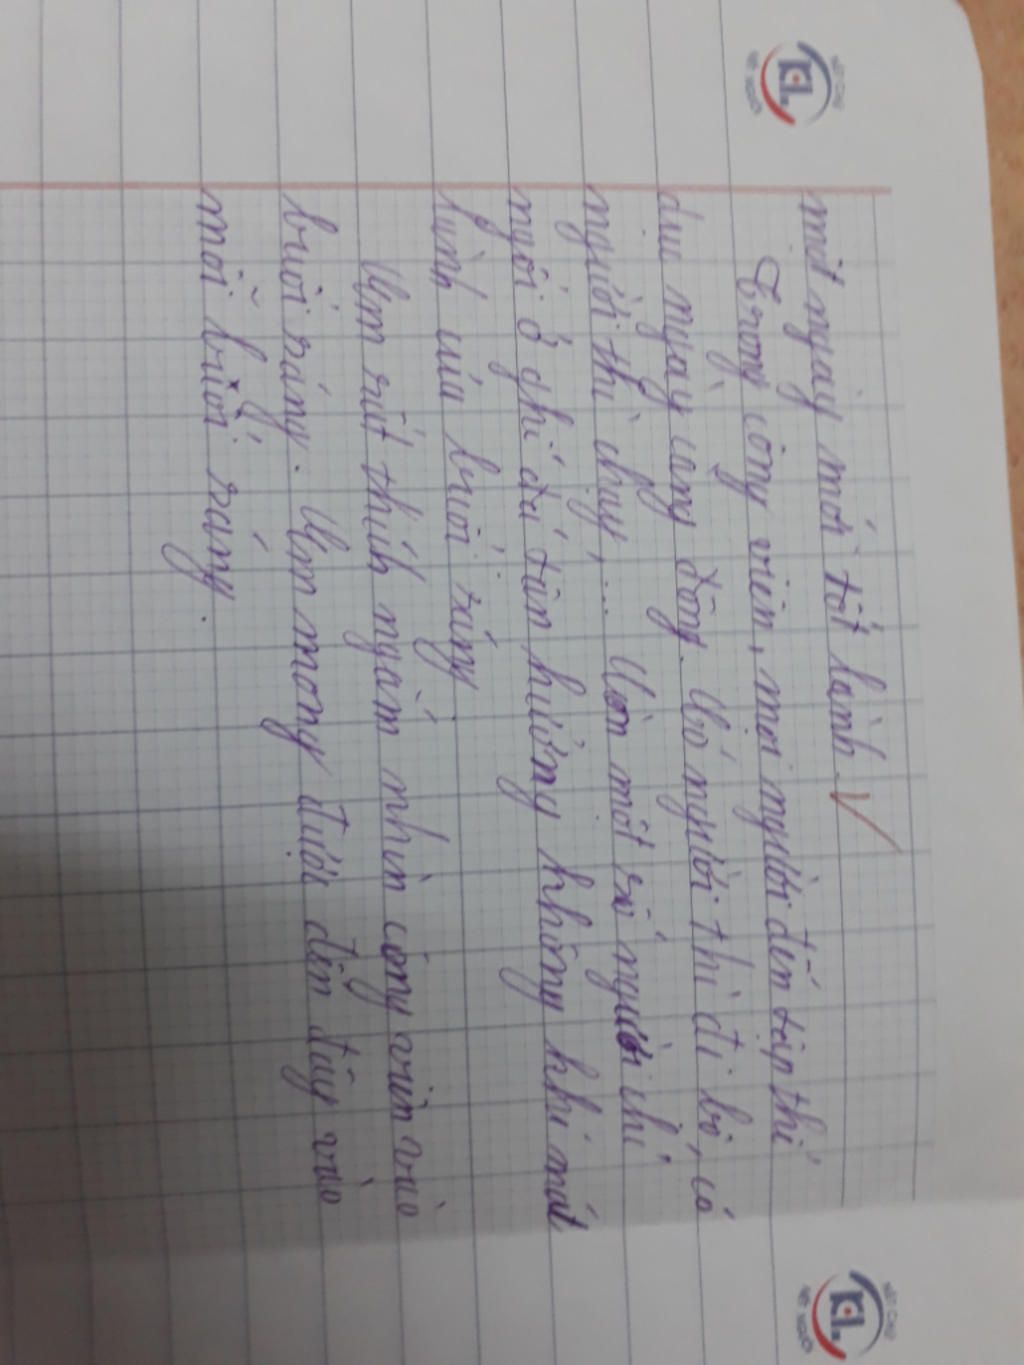 một ngày mới tốt lành.
Trong công viên, mọi người đến tập thể
dục ngày càng đông. Có người thì đi bộ, có
người thì chạy,... Còn một số người chỉ
ngồi ở ghế đá tận hưởng không khí mát
lành của buổi sáng.
Em rất thích ngắm nhìn công viên vào
buổi sáng. Em mong được đến đây vào
mỗi buổi sáng.